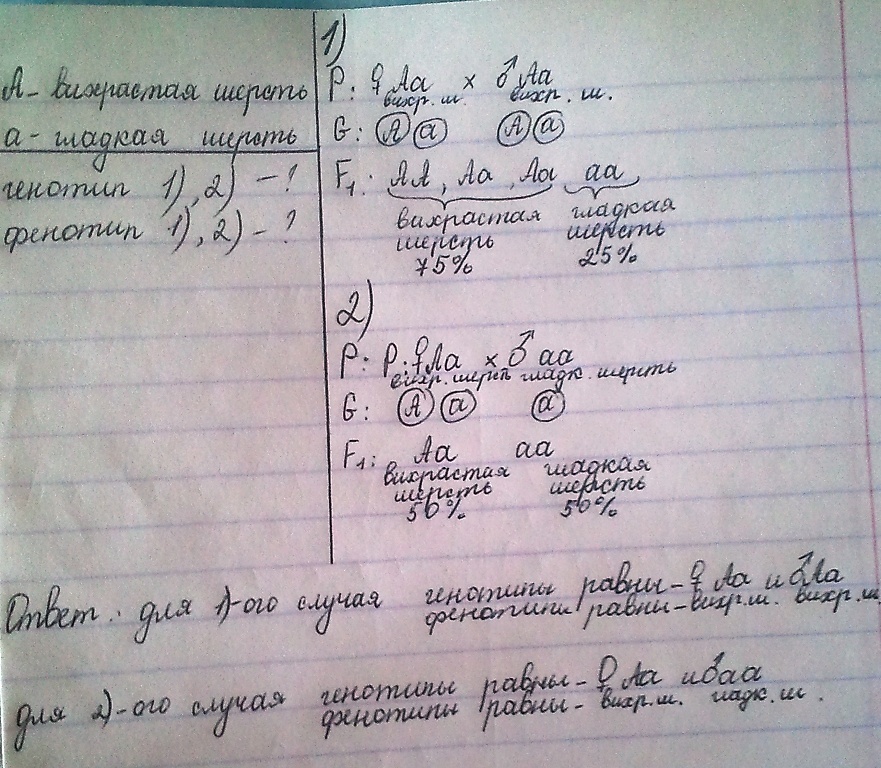 А - вихрастая шерсть
а - гладкая шерсть
генотип 1), 2) - ?
фенотип 1), 2) - ?
1)
P: ♀ Аа × ♂ Аа
вихр. ш. вихр. ш.
G: А а А а
F1: АА, Аа, Аа аа
вихрастая гладкая
шерсть шерсть
75% 25%
2)
P: P: ♀ Аа × ♂ аа
вихр. шерст гладк. шерсть
G: А а а
F1: Аа аа
вихрастая гладкая
шерсть шерсть
50% 50%
Ответ: для 1)-ого случая генотипы равны - ♀ Аа и ♂ Аа
фенотипы равны - вихр. ш. вихр. ш.
для 2)-ого случая генотипы равны - ♀ Аа и ♂ аа
фенотипы равны - вихр. ш. гладк. ш.